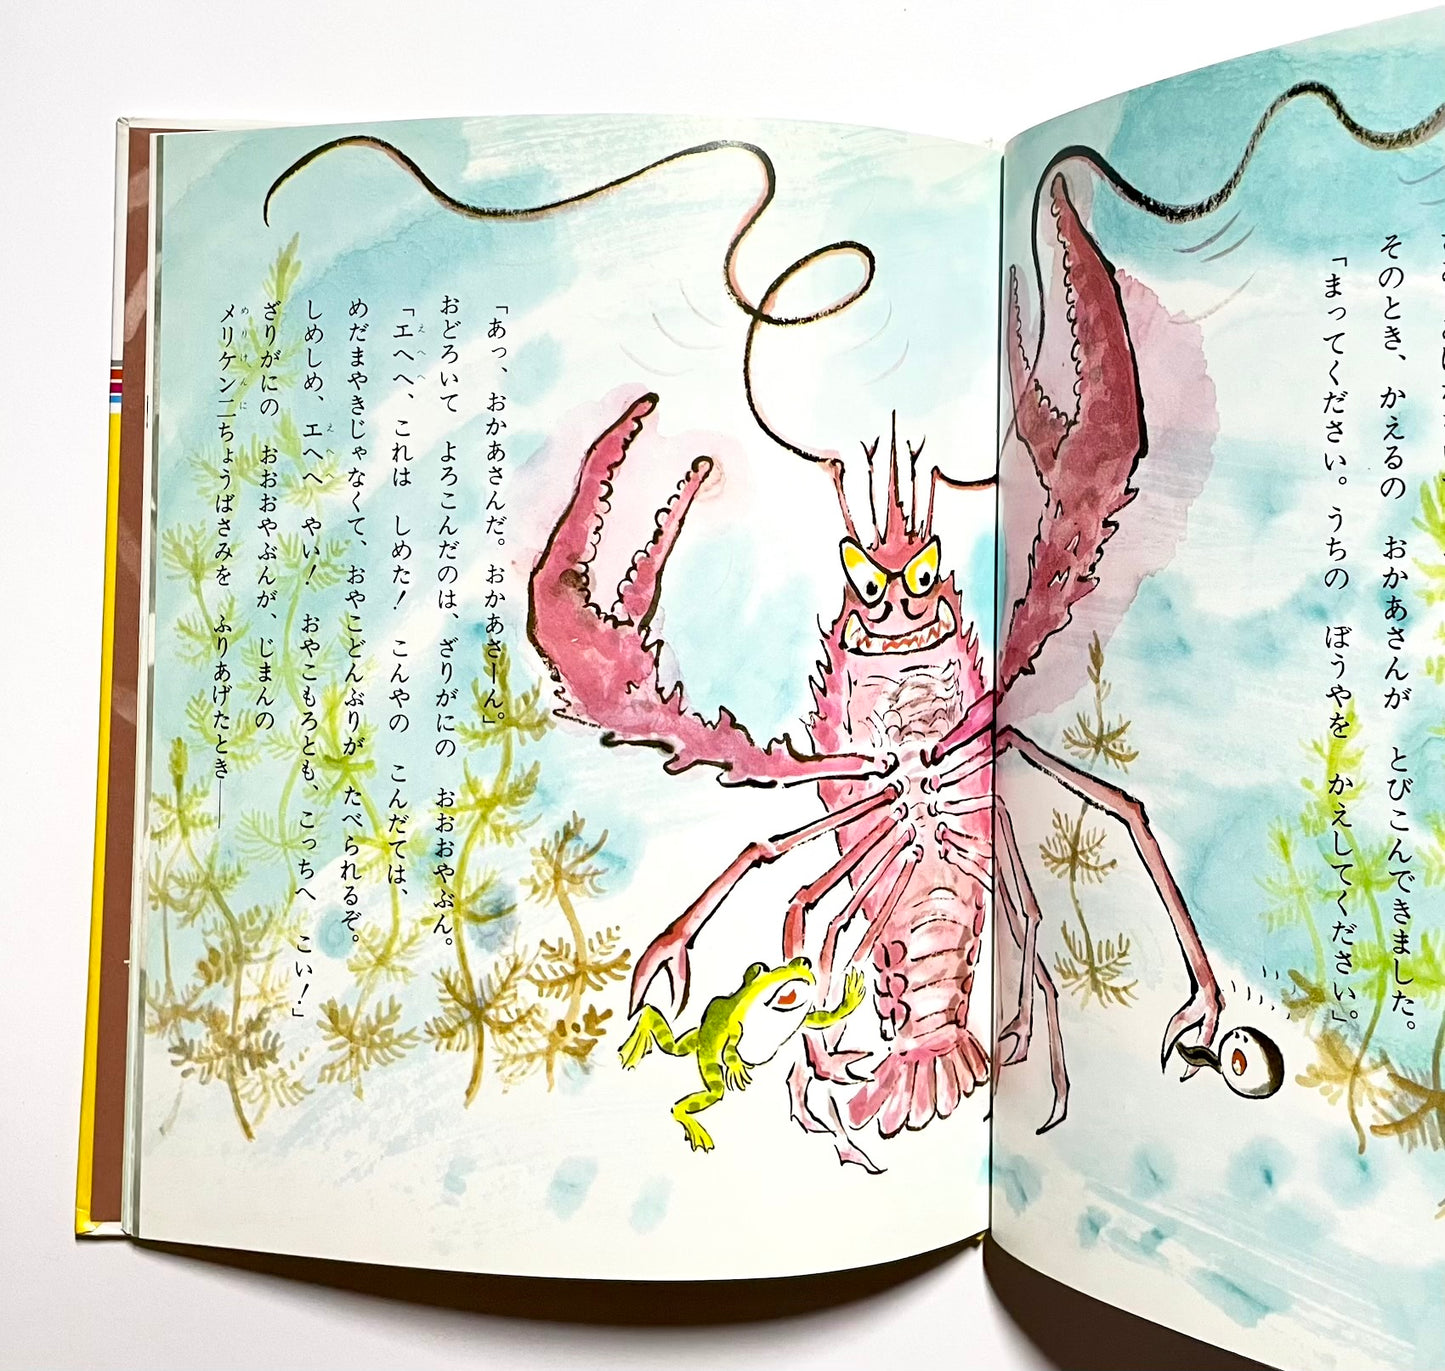 そのとき、かえるの おかあさんが とびこんできました。
「まってください。うちの ぼうやを かえしてください。」
「あっ、おかあさんだ。おかあさーん。」
おどろいて よろこんだのは、ざりがにの おおおやぶん。
「エヘヘ、これは しめた! こんやの こんだては、
えへへ
めだまやきじゃなくて、おやこどんぶりが たべられるぞ。
しめしめ、エヘヘ やい! おやこもろとも、こっちへ こい!」
えへへ
ざりがにの おおおやぶんが、じまんの
メリケン二ちょうばさみを ふりあげたとき——
めりけんに